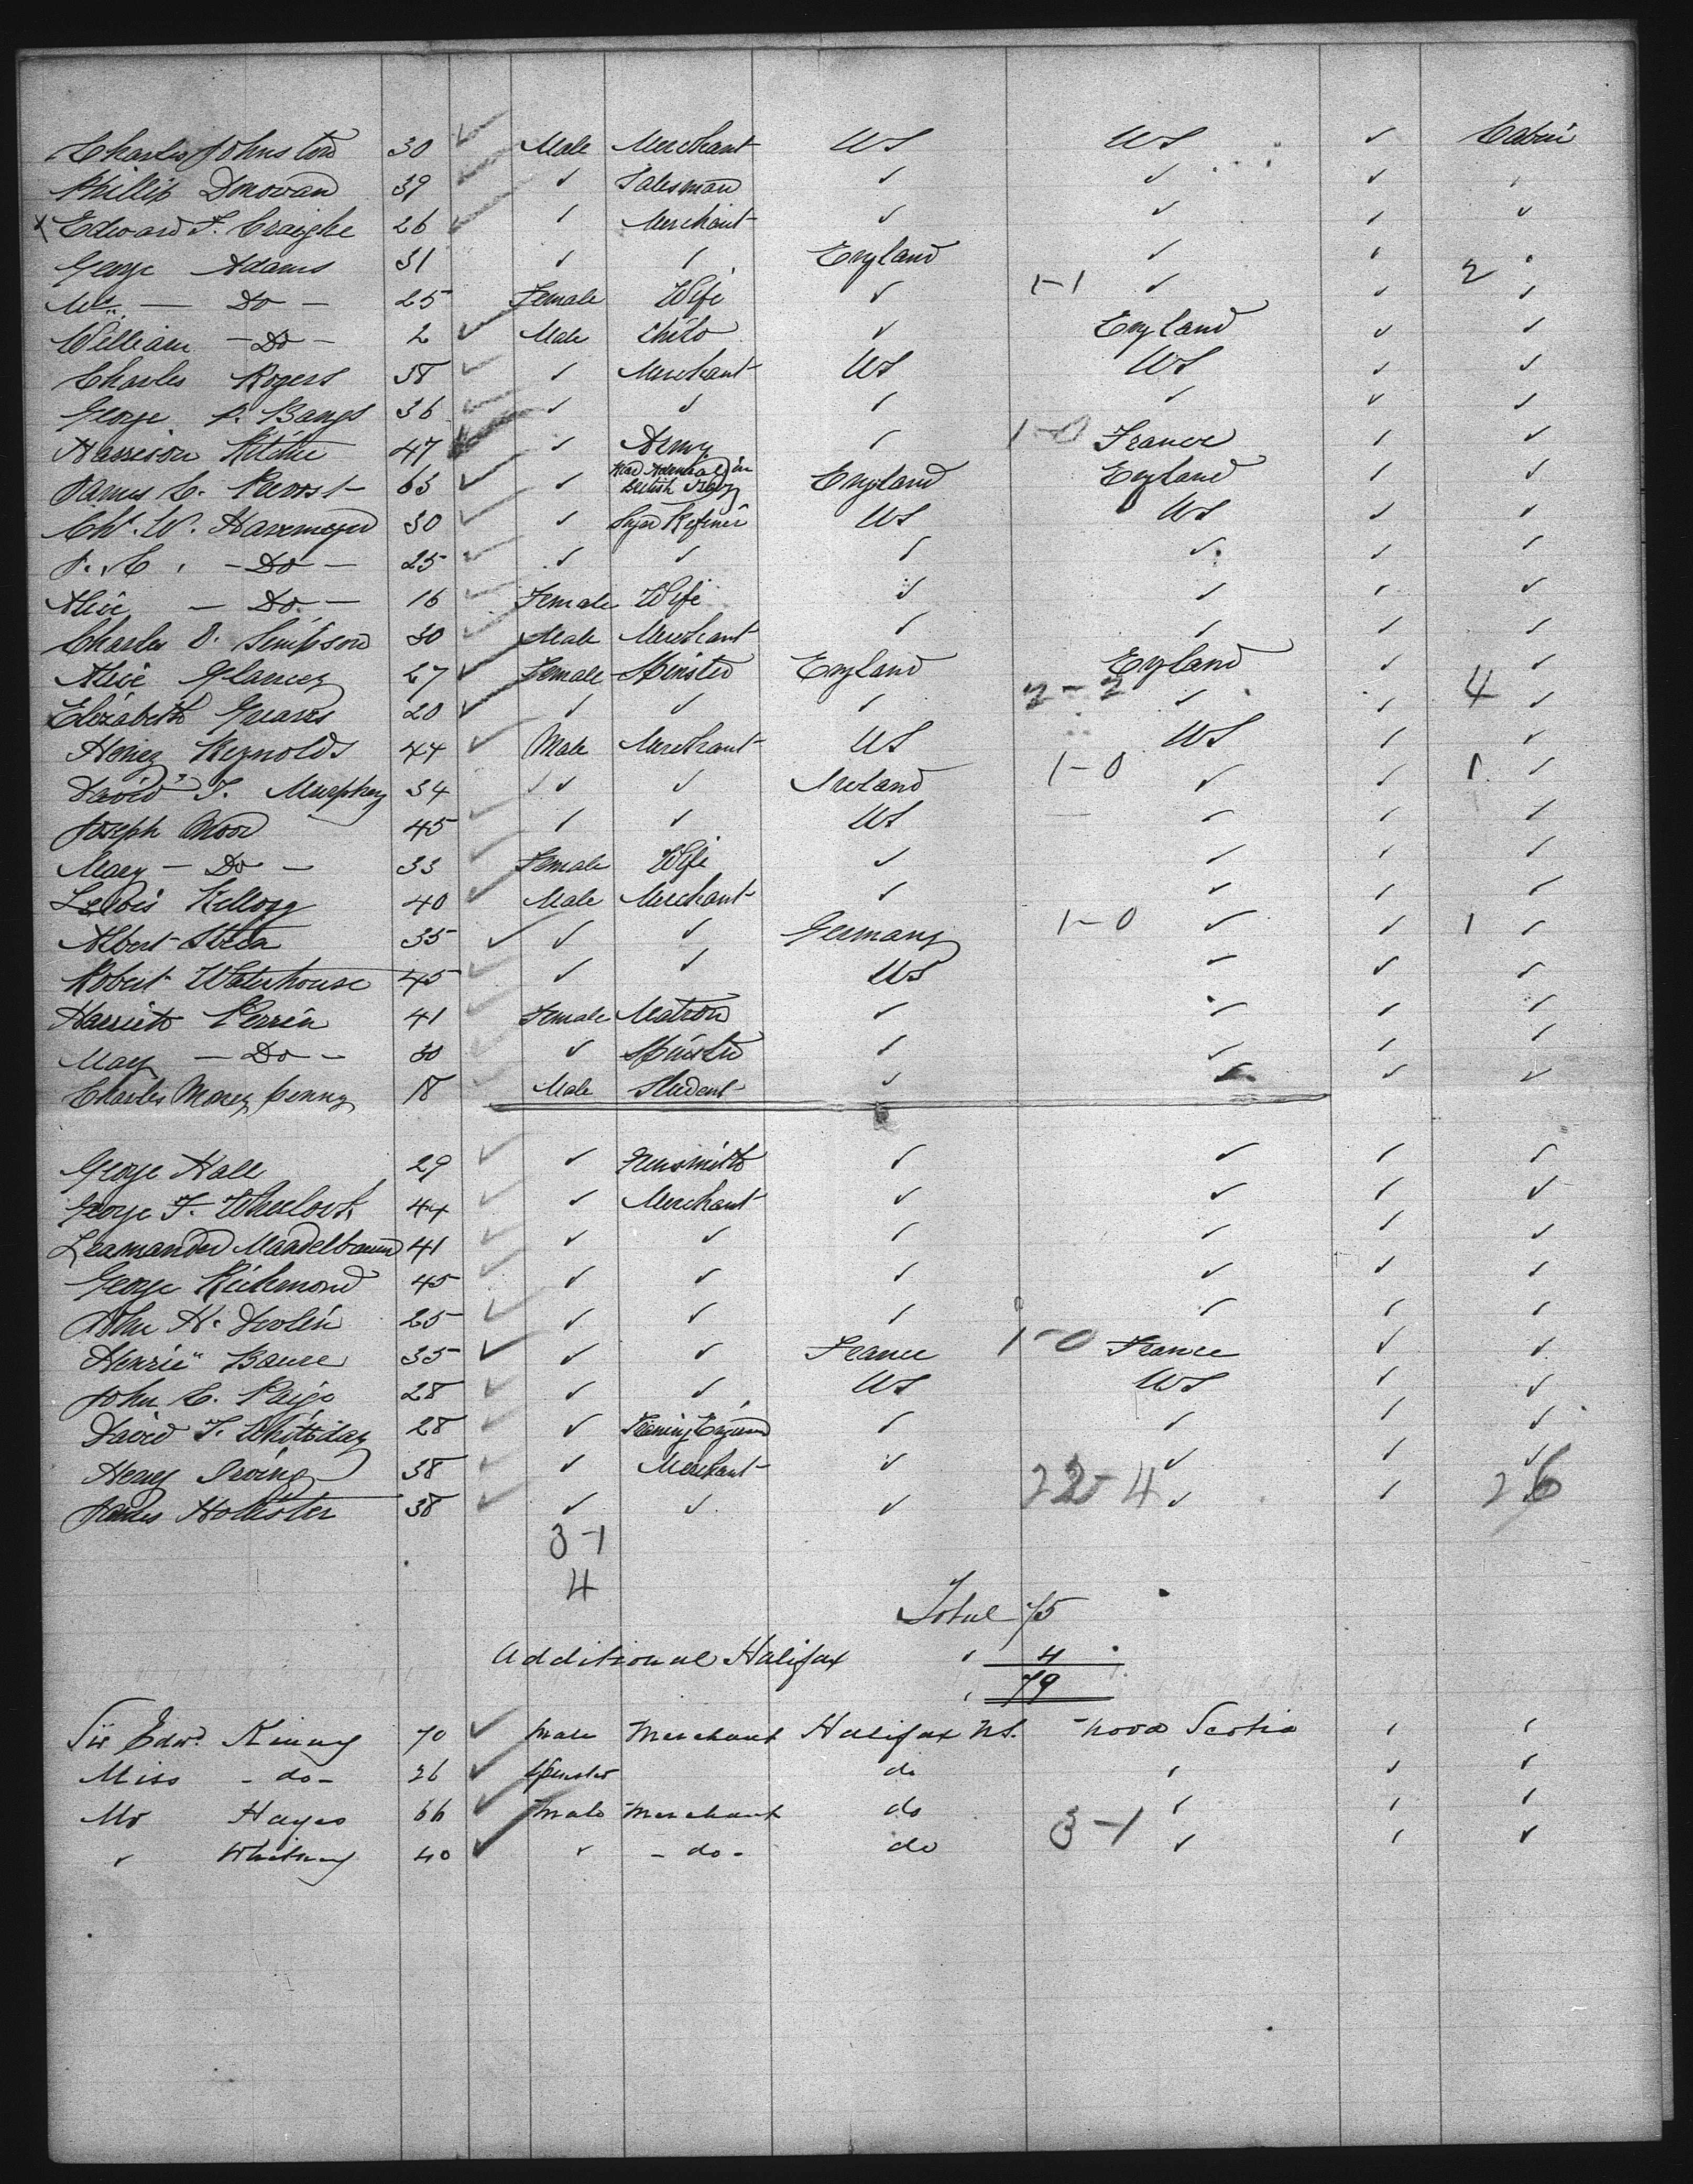 Charles Johnston 30 ✓ Male Merchant US US ✓ Cabin
Phillip Donovan 39 ✓ ✓ Salesman ✓ ✓ ✓ ✓
x Edward F. 26 ✓ ✓ Merchant ✓ ✓ ✓ ✓
George Adams 31 ✓ ✓ England ✓ ✓ ✓
Mrs — Do — 25 Female Wife ✓ 1-1 ✓ ✓ 2 ✓
William — Do — 2 ✓ Male Child ✓ England ✓ ✓
Charles Rogers 38 ✓ ✓ Merchant US US ✓ ✓
George P. Bangs 36 ✓ ✓ ✓ ✓ ✓ ✓ ✓
Harrison Ritchie 47 ✓ ✓ Army ✓ 1-0 France ✓ ✓
James C. Prevost 63 ✓ ✓ Rear Admiral in British Navy England England ✓ ✓
Chs. W. Havemeyer 30 ✓ ✓ Sugar Refiner US US ✓ ✓
25 ✓ ✓ ✓ ✓ ✓ ✓ ✓
Alice — Do — 16 ✓ Female Wife ✓ ✓ ✓ ✓
Charles D. Simpson 30 ✓ Male Merchant ✓ ✓ ✓ ✓
Alice Glancey 27 ✓ Female Spinster England England ✓ ✓
Elizabeth Greaves 20 ✓ ✓ ✓ ✓ 2-2 ✓ ✓ 4 ✓
Henry Reynolds 44 ✓ Male Merchant US US ✓ ✓
David F. Murphey 34 ✓ ✓ Ireland 1-0 ✓ ✓ 1 ✓
Joseph Wood 45 ✓ ✓ ✓ US ✓ ✓ ✓
Mary — Do — 33 ✓ Female Wife ✓ ✓ ✓ ✓
Lewis Kellogg 40 ✓ Male Merchant ✓ ✓ ✓ ✓
Albert Stein 35 ✓ ✓ ✓ Germany 1-0 ✓ ✓ 1 ✓
Robert Waterhouse 45 ✓ ✓ ✓ US ✓ ✓ ✓
Harriett Perrin 41 ✓ Female Matron ✓ ✓ ✓ ✓
May — Do — 30 ✓ ✓ Spinster ✓ ✓ ✓ ✓
Charles Money penny 18 ✓ Male Student ✓ ✓ ✓ ✓
George Hall 29 ✓ ✓ Gunsmith ✓ ✓ ✓ ✓
George F. Wheelock 44 ✓ ✓ Merchant ✓ ✓ ✓ ✓
Mandelbaum 41 ✓ ✓ ✓ ✓ ✓ ✓ ✓
George Richmond 45 ✓ ✓ ✓ ✓ ✓ ✓ ✓
John H. Devlin 25 ✓ ✓ ✓ ✓ ✓ ✓ ✓
Henrie 35 ✓ ✓ ✓ France 1-0 France ✓ ✓
John C. Paige 28 ✓ ✓ ✓ US US ✓ ✓
David F. 28 ✓ ✓ ✓ ✓ ✓ ✓
Henry Irving 38 ✓ ✓ Merchant ✓ ✓ ✓ ✓
James Hollister 38 ✓ ✓ ✓ ✓ 22-4 ✓ ✓ 26
3-1
4
Total 75
Additional Halifax ✓ 4
✓ 79
Sir Edw. Kinny 70 ✓ Male Merchant Halifax N.S. Nova Scotia ✓ ✓
Miss - do - 26 ✓ Spinster do ✓ ✓ ✓
Mr Hayes 66 ✓ Male Merchant do ✓ ✓ ✓
✓ Whitney 40 ✓ ✓ - do - do 3-1 ✓ ✓ ✓